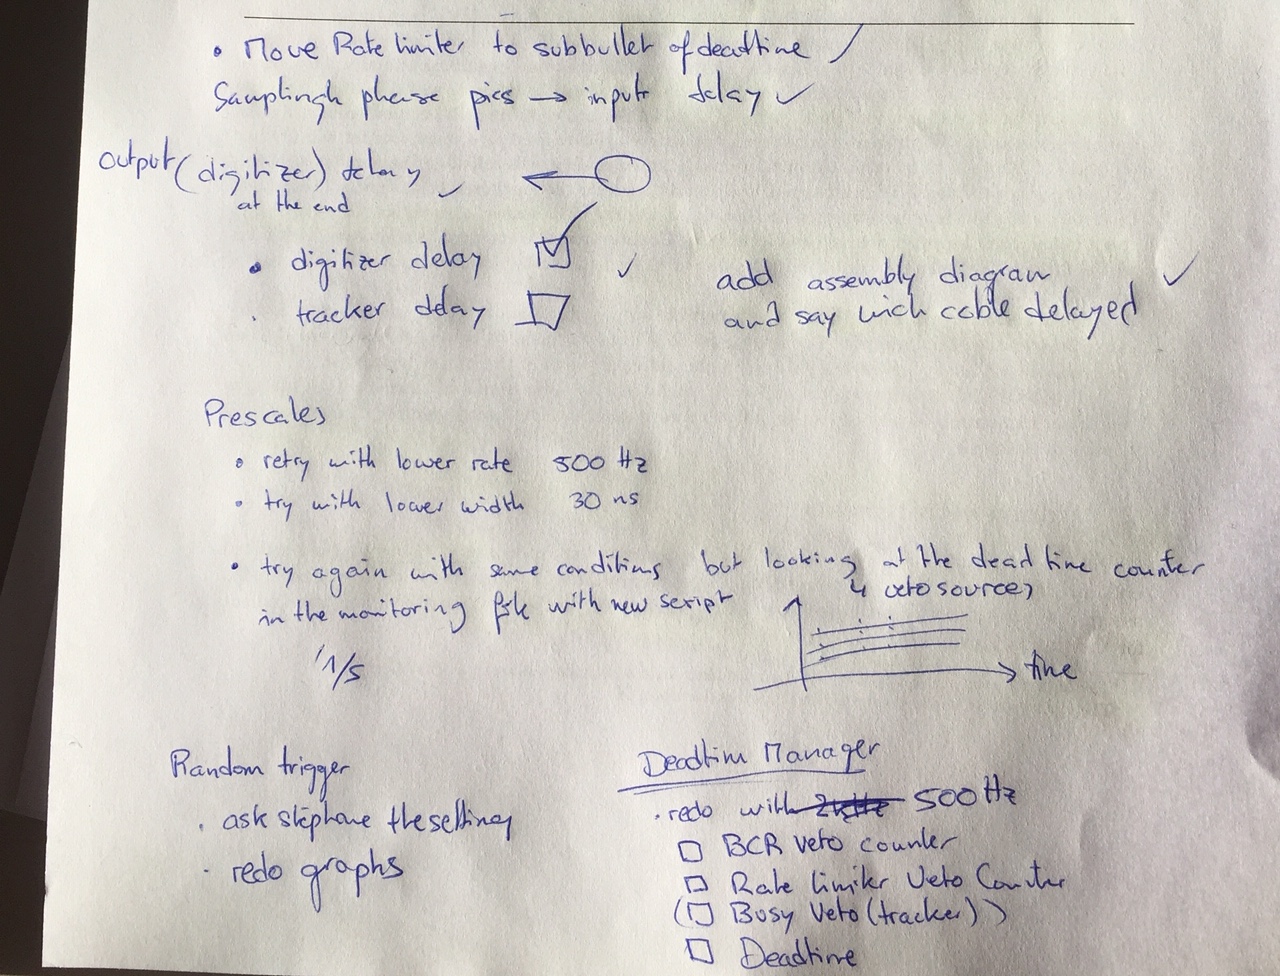 • Move Rate limiter to subbullet of deadtime ✓
Samplingh phease pics → input delay ✓
output (digitizer) delay ✓
at the end
• digitizer delay ☑ ✓
· tracker delay ☐
add assembly diagram ✓
and say wich cable delayed
Prescales
• retry with lower rate 500 Hz
• try with lower width 30 ns
• try again with same conditions but looking at the dead time counter
in the monitoring with new script
4 veto sources
1/s
time
Random trigger
· ask stéphane the settings
· redo graphs
Deadtim Manager
· redo with 2kHz 500 Hz
☐ BCR veto counter
☐ Rate limiter Veto Counter
(☐ Busy Veto (tracker))
☐ Deadtime